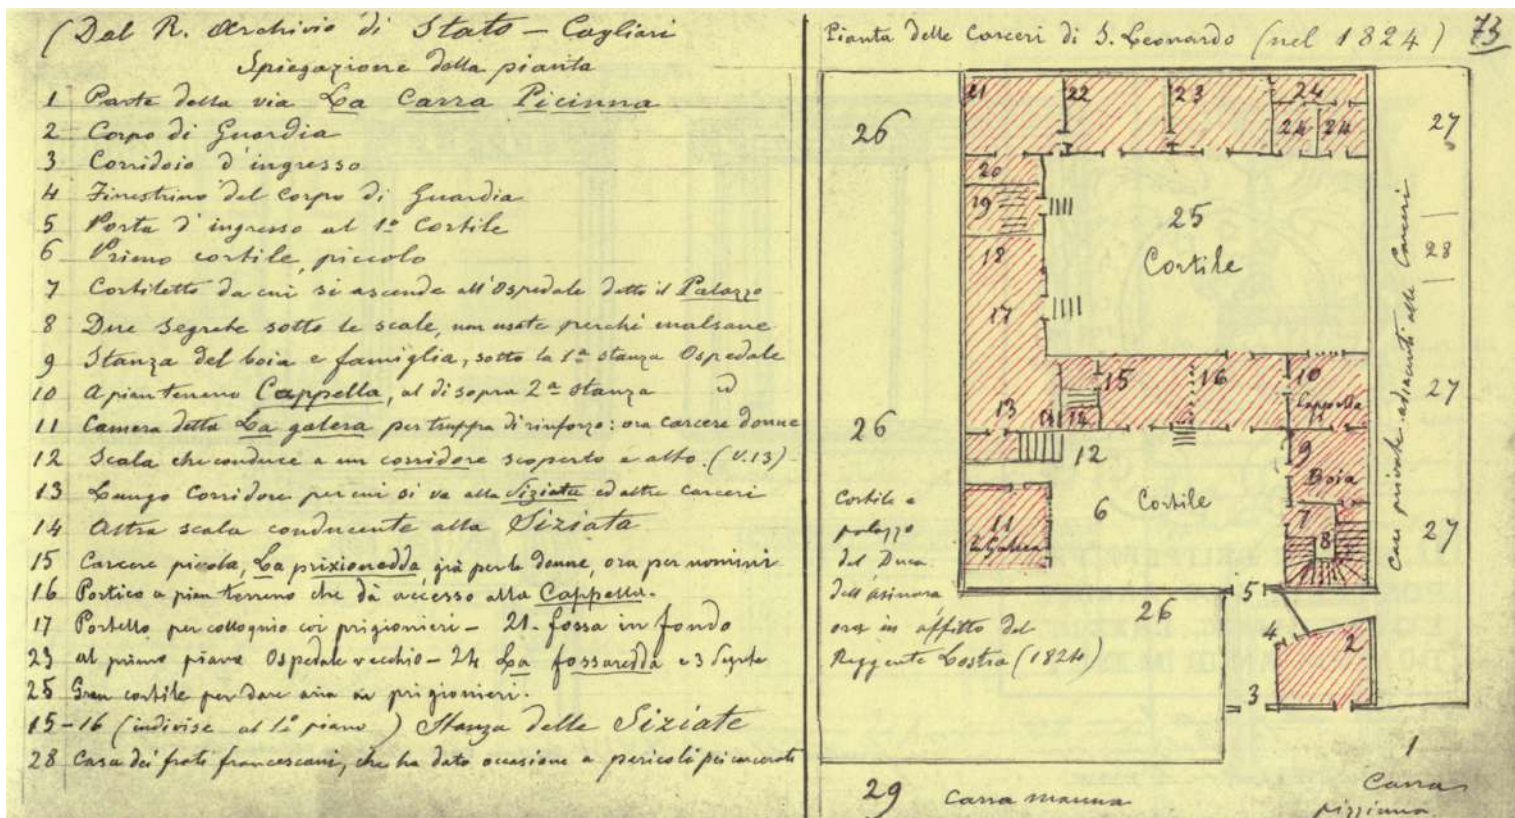 (Dal R. Archivio di Stato – Cagliari
Spiegazione della pianta
1 Parte della via La Carra Picinna
2 Corpo di Guardia
3 Corridoio d'ingresso
4 Finestrino del Corpo di Guardia
5 Porta d'ingresso al 1º Cortile
6 Primo cortile, piccolo
7 Cortiletto da cui si ascende all'Ospedale detto il Palazzo
8 Due segrete sotto le scale, non usate perchè malsane
9 Stanza del boia e famiglia, sotto la 1ª stanza Ospedale
10 A pian terreno Cappella, al di sopra 2ª stanza id
11 Camera detta La galera per truppa di rinforzo: ora carcere donne
12 Scala che conduce a un corridore scoperto e alto. (V. 13)
13 Lungo Corridore per cui si va alla Siziata ed altre carceri
14 Altra scala conducente alla Siziata
15 Carcere piccola, La prixionedda, già per le donne, ora per uomini
16 Portico a pian terreno che dà accesso alla Cappella.
17 Portello per colloquio coi prigionieri – 21. fossa in fondo
23 al primo piano Ospedale vecchio – 24 La fossaredda e 3 segrete
25 Gran cortile per dare aria ai prigionieri.
15–16 (indivise al 1º piano) Stanza delle Siziate
28 Casa dei frati francescani, che ha dato occasione a pericoli pei carcerati
Pianta delle Carceri di S. Leonardo (nel 1824) 73
26
21
22
23
24
24
24
27
20
19
18
17
25
Cortile
28
Case private adiacenti alle Carceri
15
16
10
Cappella
27
26
13
14
12
9
Boia
6 Cortile
11
La Galera
7
8
27
Cortile e
palazzo
del Duca
dell'Asinara
ora in affitto del
Reggente Lostia (1824)
26
5
4
2
3
1
Carra
pizzinna
29 Carra manna